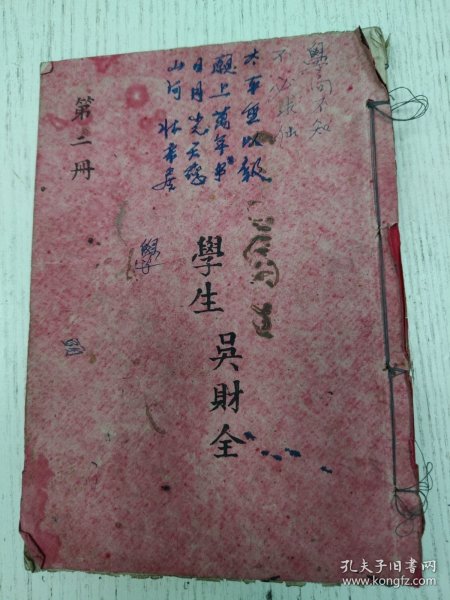 學問不知
不必求仙
太平無以報
願上萬年書
日月光天德
山河壯帝居
學生
吳財全
第二冊
學
孔夫子旧书网
www.kongfz.com